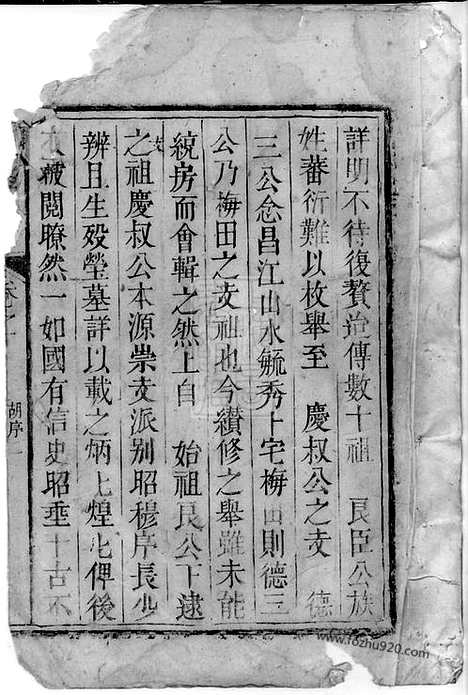 詳明不待復贅迨傳數十祖 良臣公族
姓蕃衍難以枚舉至 慶叔公之支 德
三公念昌江山水毓秀卜宅梅田則德三
公乃梅田之支祖也今纉修之舉雖未能
統房而會輯之然上自 始祖良公下逮
支之祖慶叔公本源崇支派别昭穆序長少
辨且生殁塋墓詳以載之炳也煌也俾後
披閱瞭然一如國有信史昭垂千古不
胡序
www.fozhu920.com